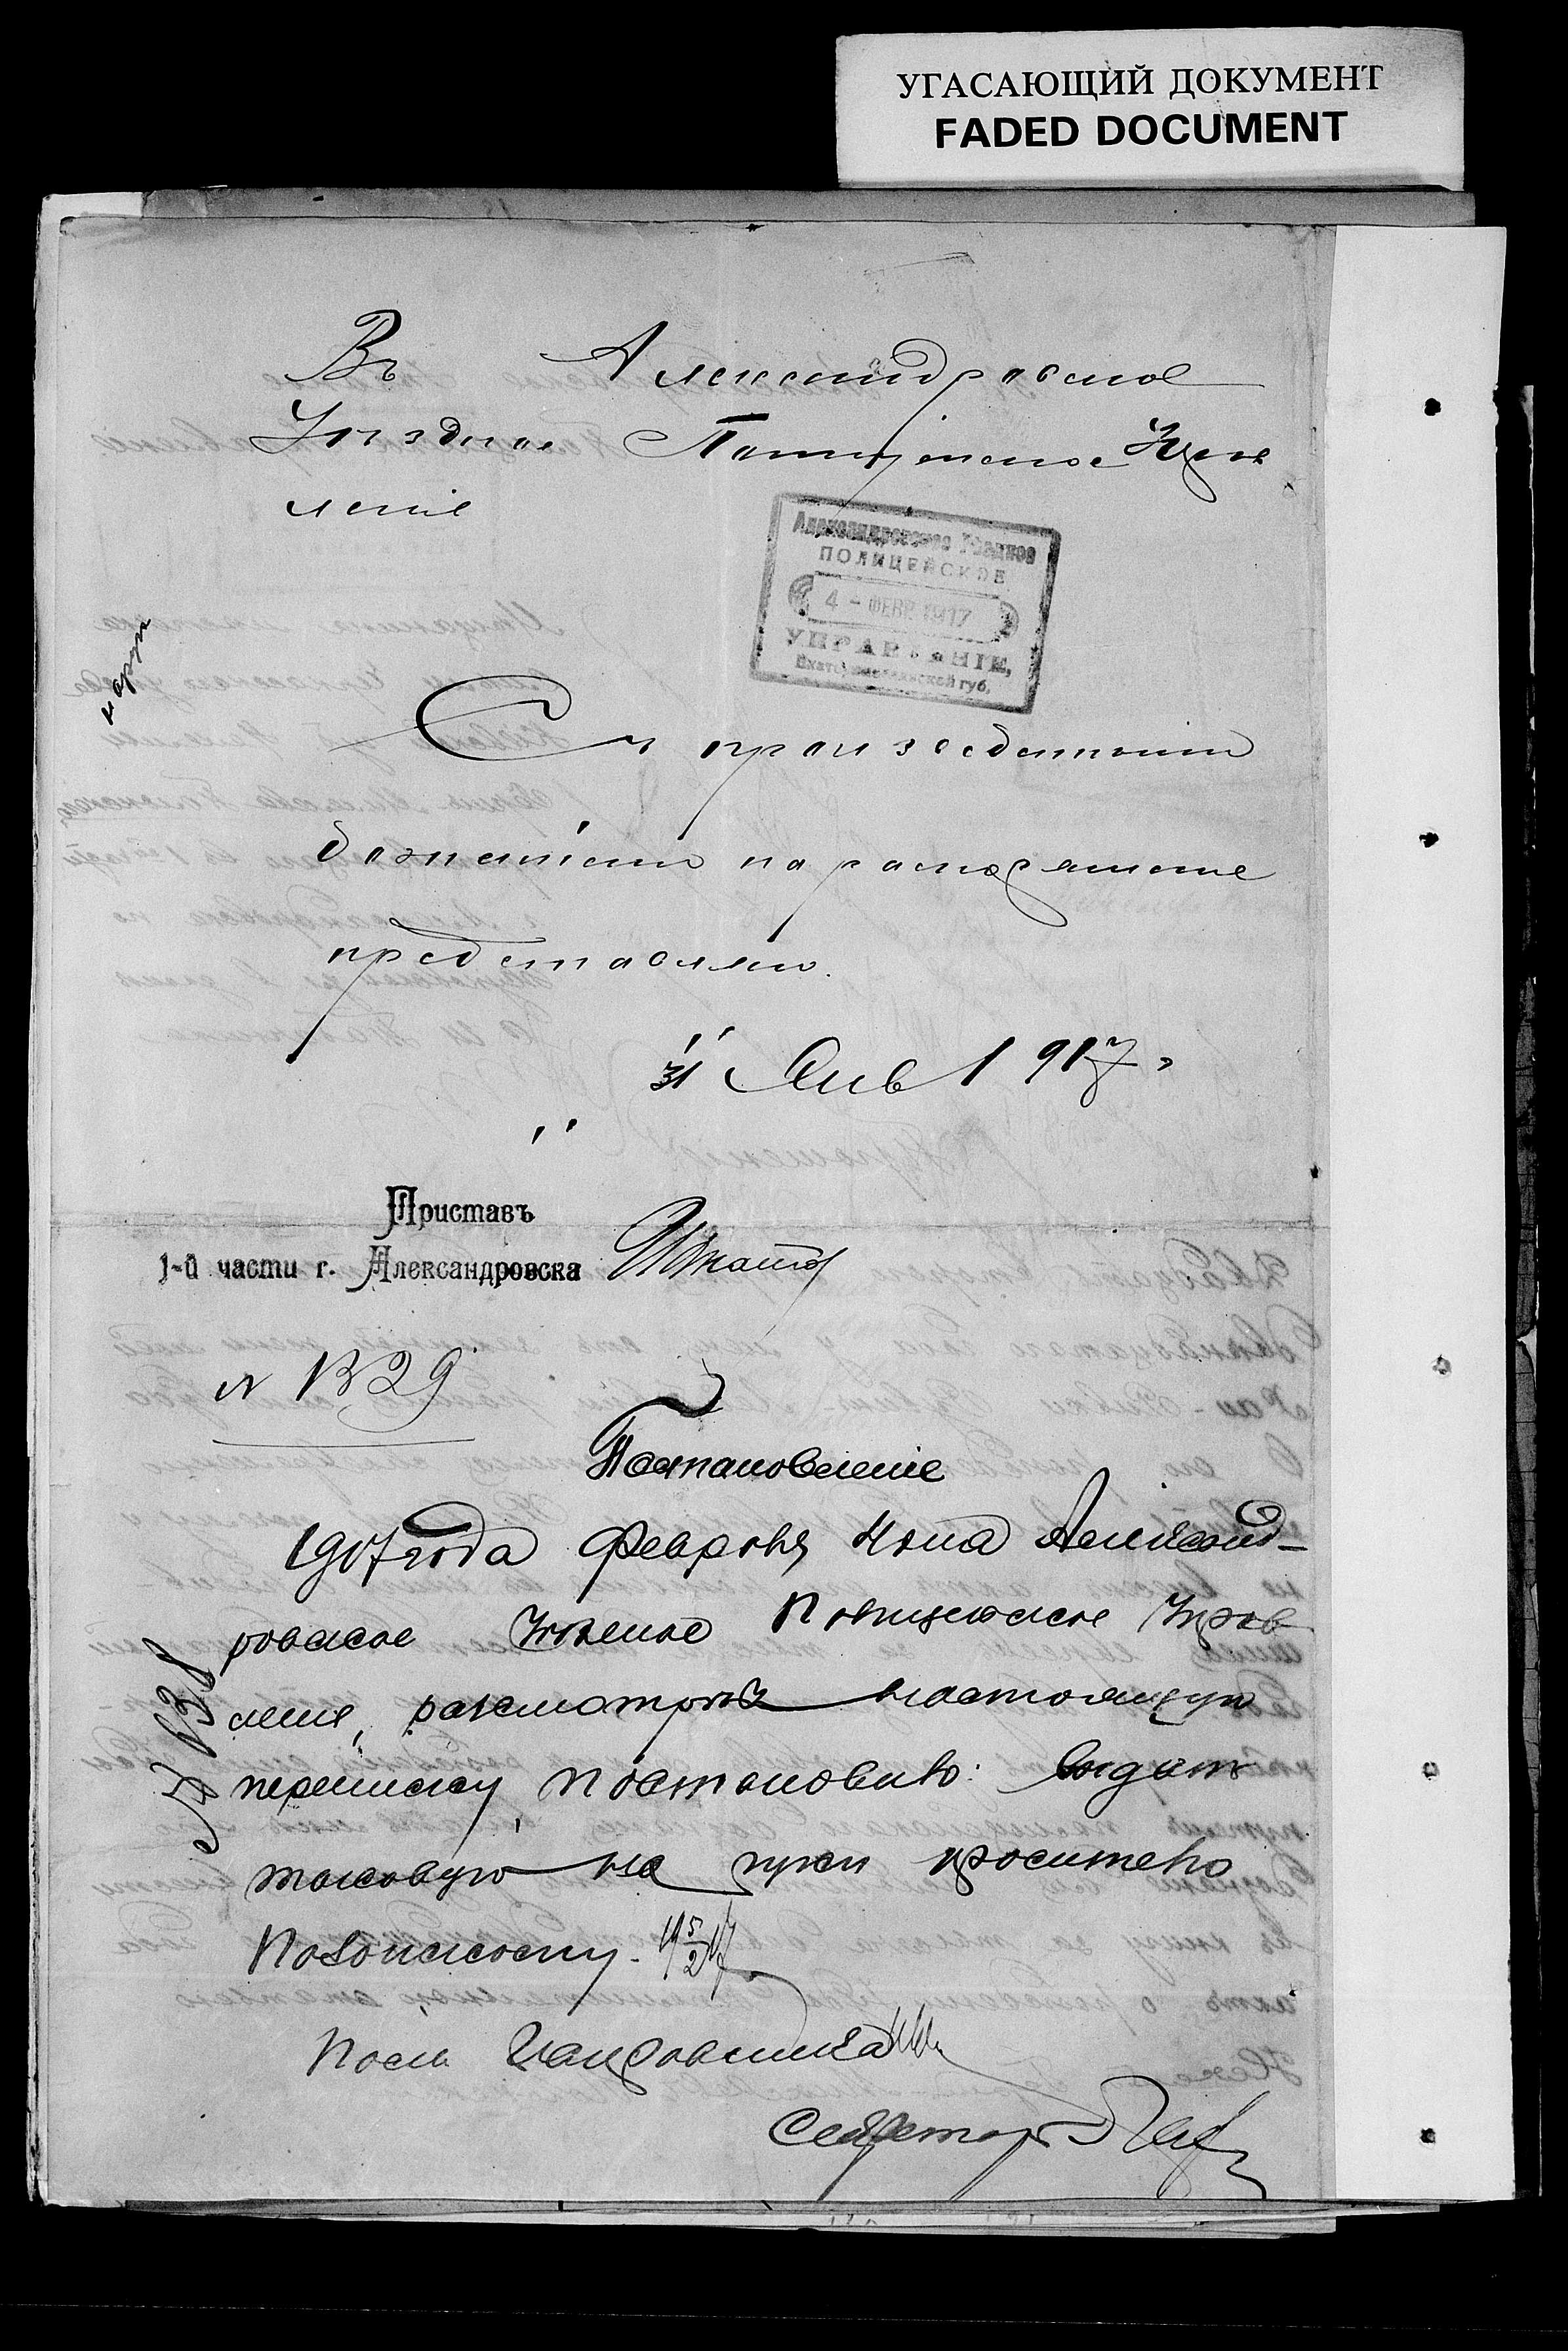 УГАСАЮЩИЙ ДОКУМЕНТ
FADED DOCUMENT
Въ Александровское
Уѣздное Полицейское Управ
леніе
Александровское Уѣздное
ПОЛИЦЕЙСКОЕ
4 - ФЕВР. 1917
УПРАВЛЕНІЕ,
Екатеринославской губ.
Съ произведеннымъ
дознаніемъ на распоряженіе
представляю.
31 Янв 1917 г
Приставъ
1-й части г. Александровска
N 1329
Постановленіе
1917 года февраля дня Александ-
ровское Уѣздное Полицейское Управ
леніе, разсмотрѣвъ настоящую
переписку, постановило: выдать
таковую на руки просителю
Полонскому. 19 5/2 17
Пом. Исправника
Секретарь